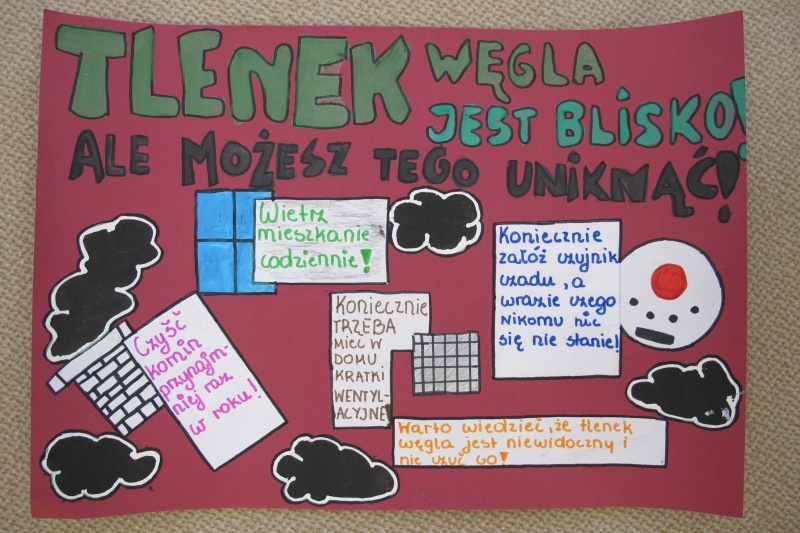 TLENEK WĘGLA
JEST BLISKO!
ALE MOŻESZ TEGO UNIKNĄĆ!
Wietrz
mieszkanie
codziennie!
Koniecznie
załóż czujnik
czadu, a
wrazie czego
nikomu nic
się nie stanie!
Koniecznie
TRZEBA
MIEĆ W
DOMU
KRATKI
WENTYL-
ACYJNE
Czyść
komin
przynajm-
niej raz
w roku!
Warto wiedzieć, że tlenek
węgla jest niewidoczny i
nie czuć GO!